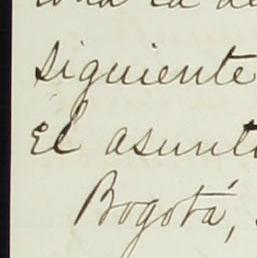 siguiente
El asunt
Bogotá,